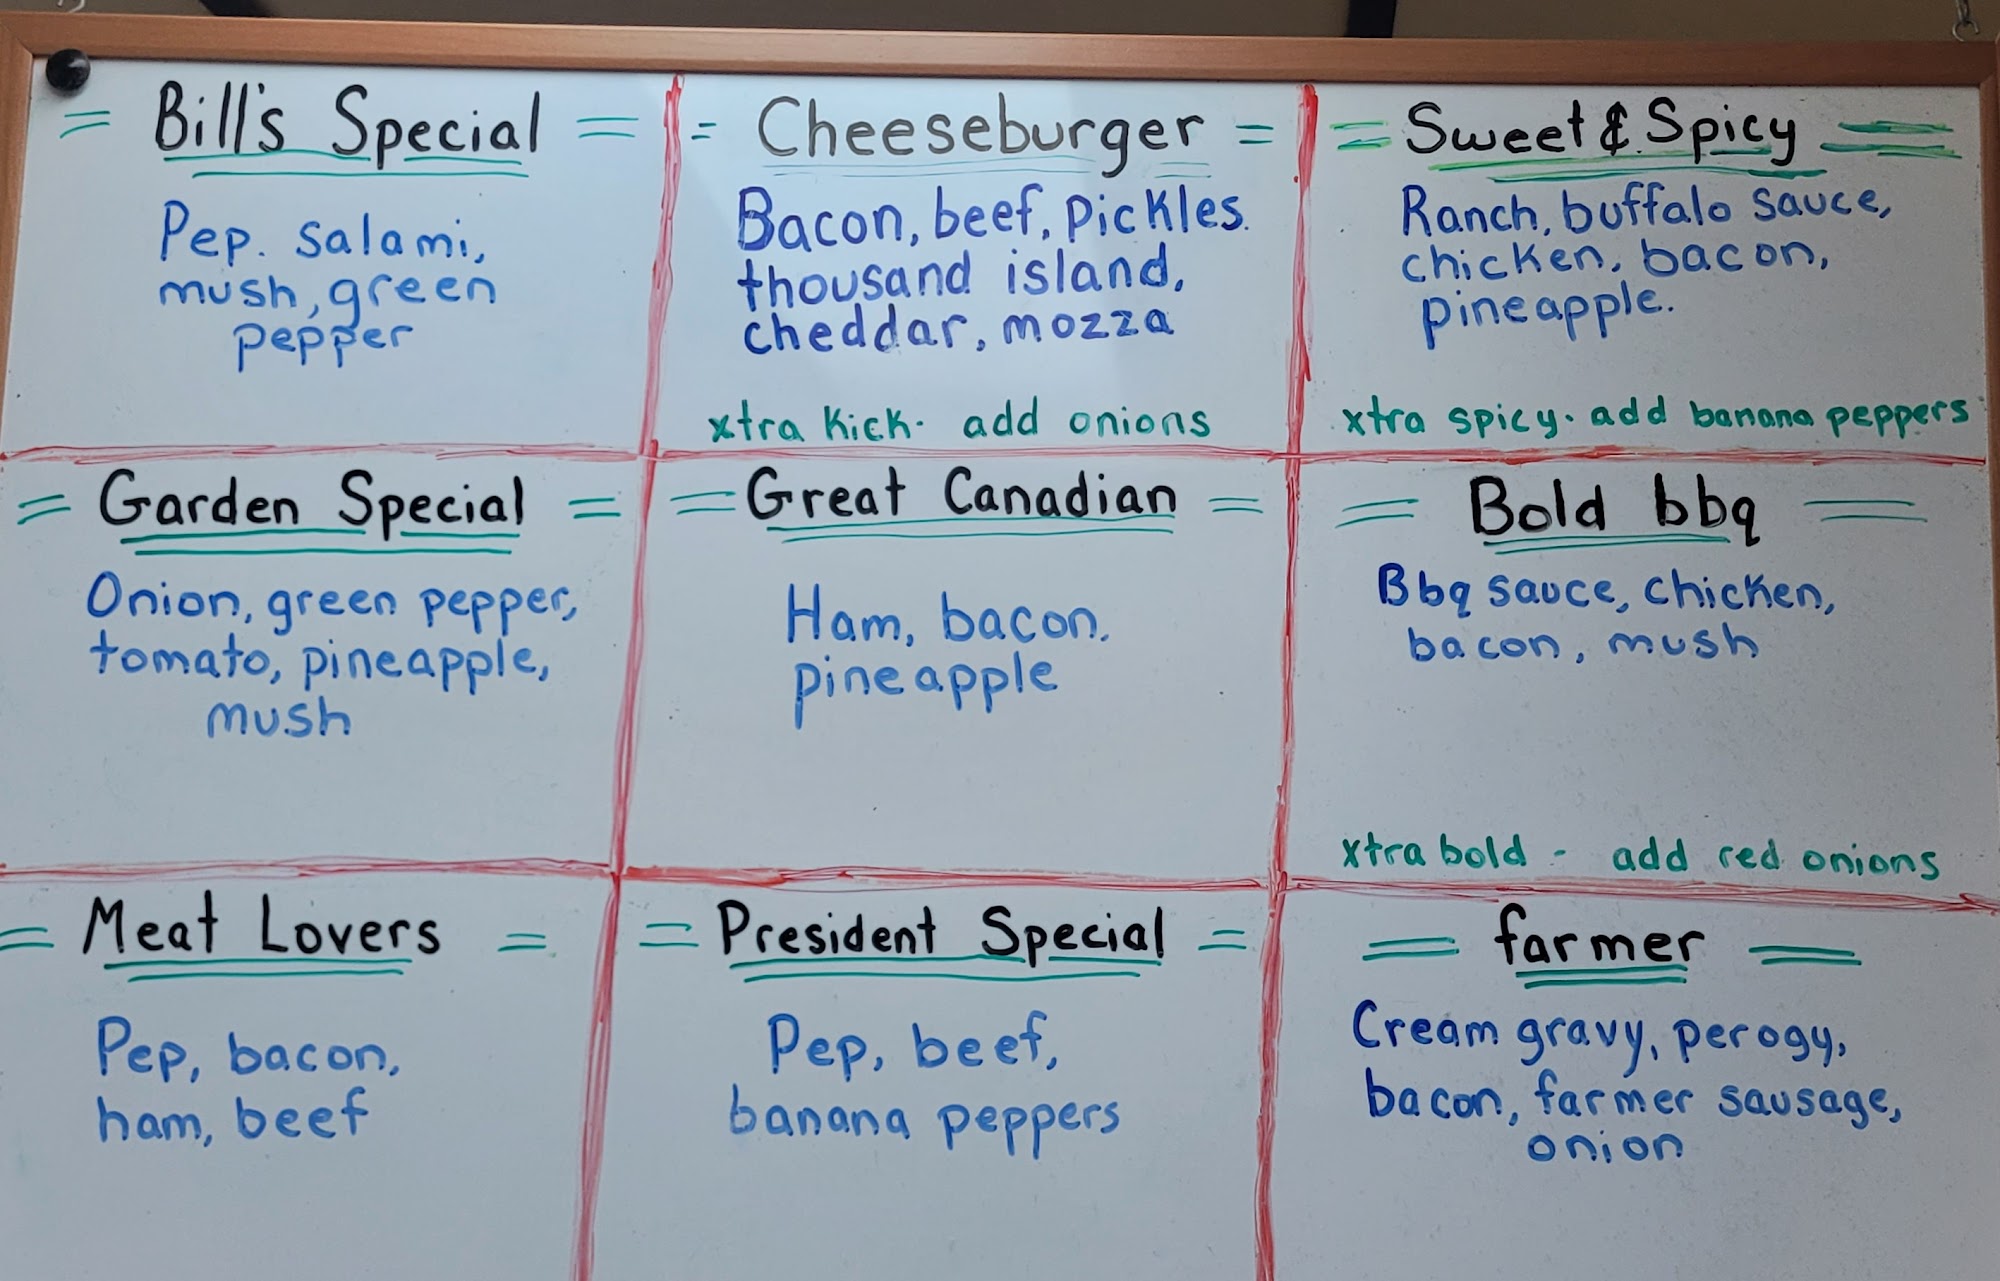 = Bill's Special =
Pep. salami,
mush, green
pepper
= Cheeseburger =
Bacon, beef, pickles.
thousand island,
cheddar, mozza
xtra kick. add onions
= Sweet & Spicy =
Ranch, buffalo sauce,
chicken, bacon,
pineapple.
xtra spicy. add banana peppers
= Garden Special =
Onion, green pepper,
tomato, pineapple,
mush
= Great Canadian =
Ham, bacon,
pineapple
= Bold bbq =
Bbq sauce, chicken,
bacon, mush
xtra bold - add red onions
= Meat Lovers =
Pep, bacon,
ham, beef
= President Special =
Pep, beef,
banana peppers
= farmer =
Cream gravy, perogy,
bacon, farmer sausage,
onion